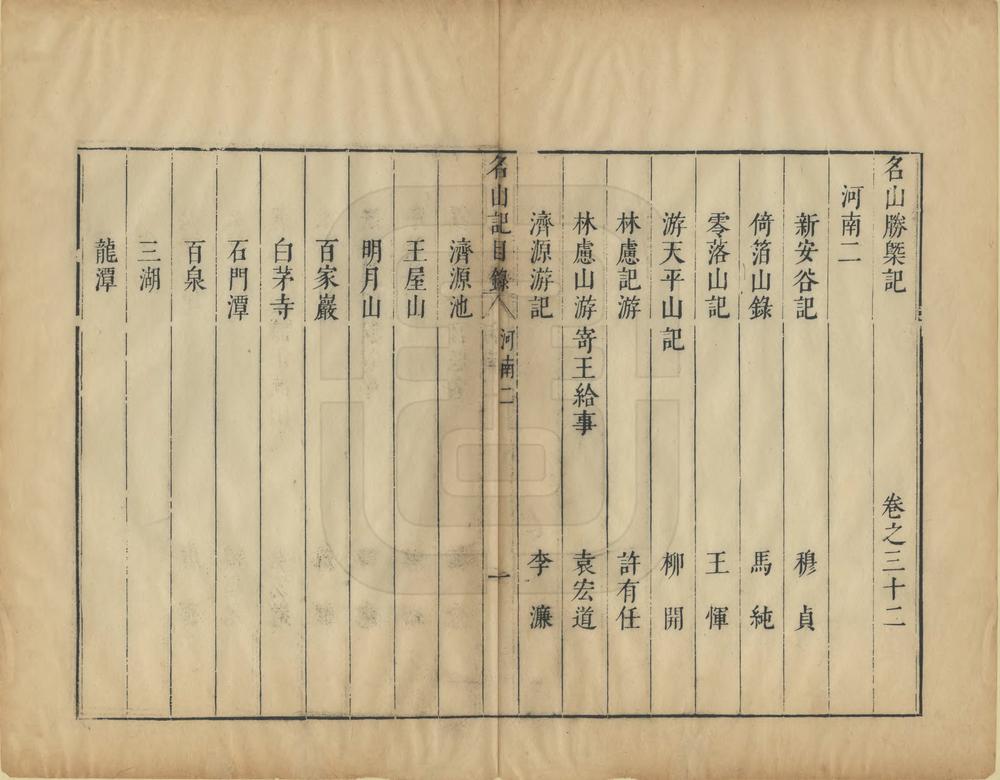 名山勝槩記 卷之三十二
河南二
新安谷記 穆貞
倚箔山錄 馬純
零落山記 王惲
游天平山記 柳開
林慮記游 許有任
林慮山游寄王給事 袁宏道
濟源游記 李濂
名山記目錄 河南二 一
濟源池
王屋山
明月山
百家巖
白茅寺
石門潭
百泉
三湖
龍潭